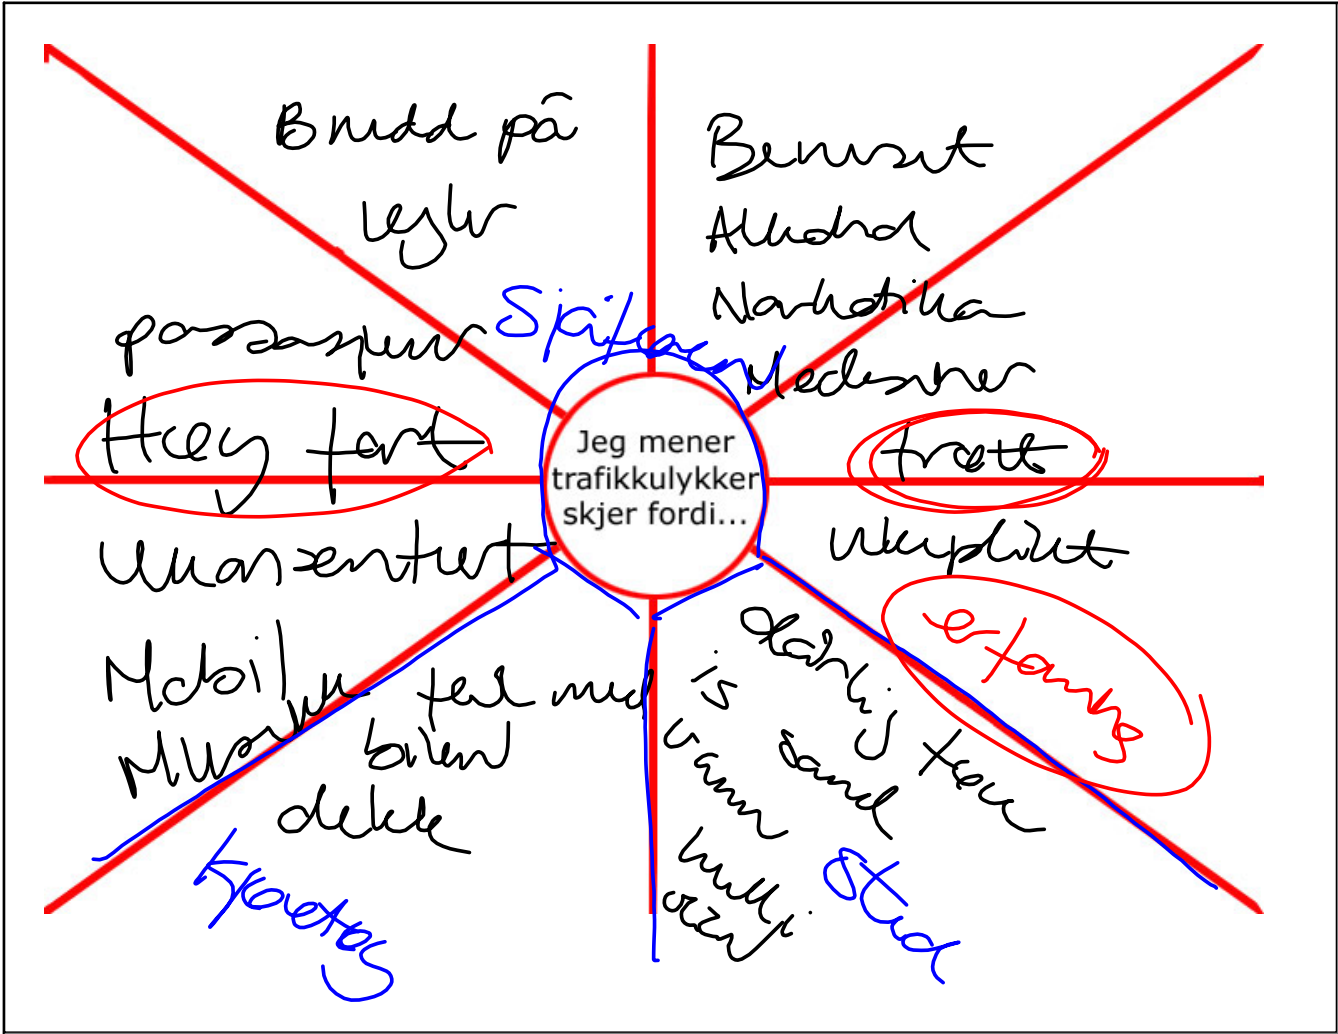 Brudd på
regler
Beruset
Alkohol
Narkotika
Medesiner
Sjåføren
passasjerer
Høy fart
trøtt
Jeg mener
trafikkulykker
skjer fordi...
ukonsentrert
uerfaring
Mobil
feil med
bilen
dekk
is
vann
dårlig
sand
Kjøretøy
Sted